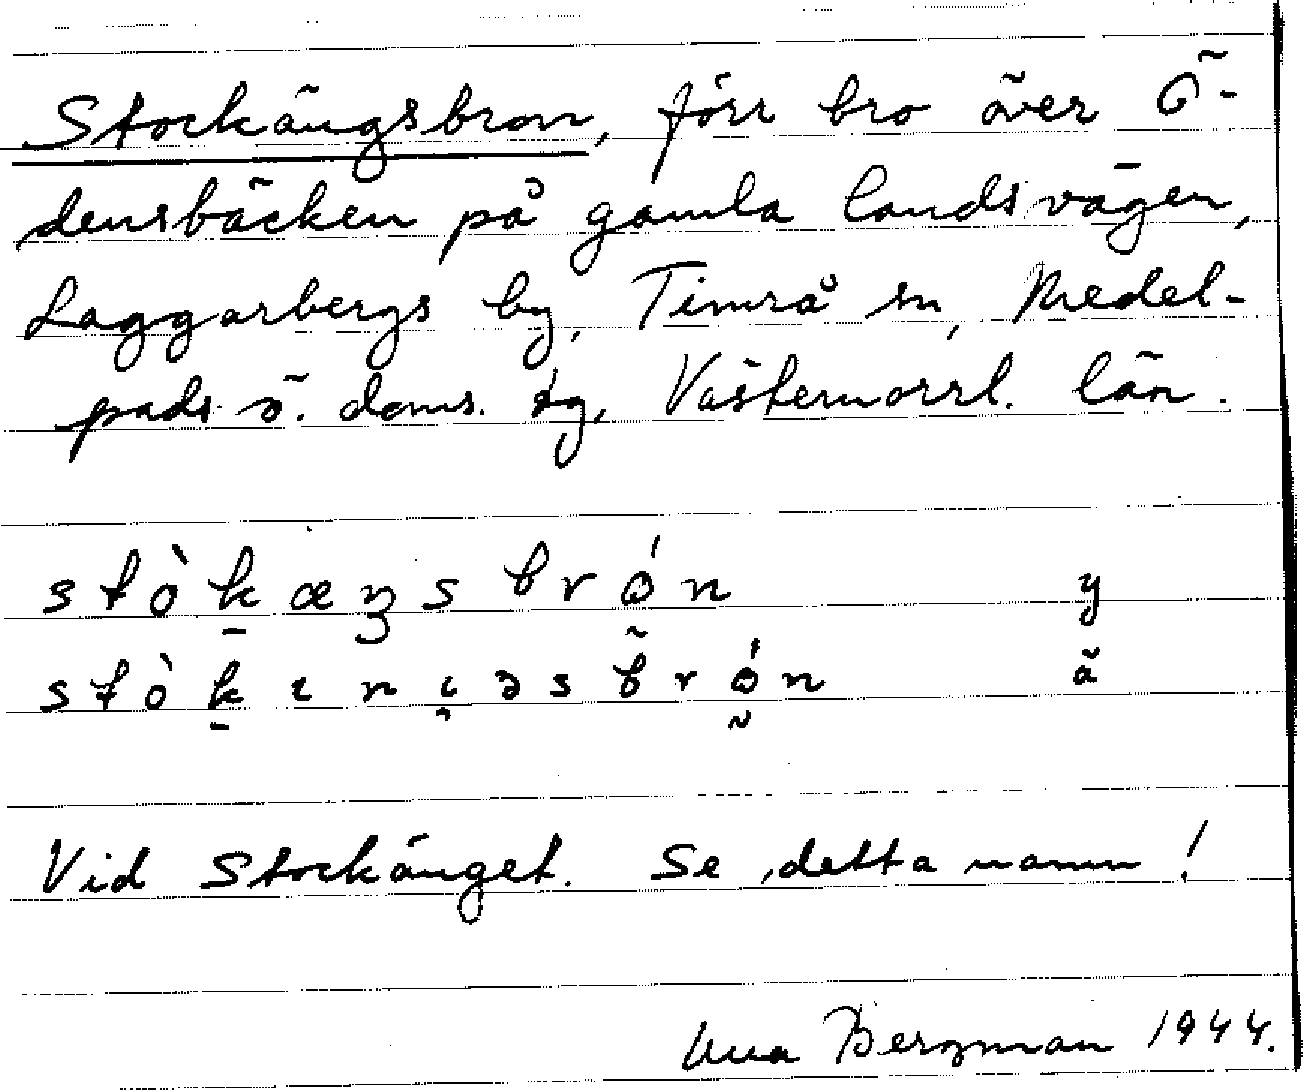 Stockängsbron, förr bro över Ö-
densbäcken på gamla landsvägen,
Laggarbergs by, Timrå sn, Medel-
pads ö. doms. tg, Västernorrl. län.
stòk̠æŋsbrón y
stòk̠ını̯əsb̃ró̰n ä
Vid Stockänget. Se detta namn!
Bergman 1944.